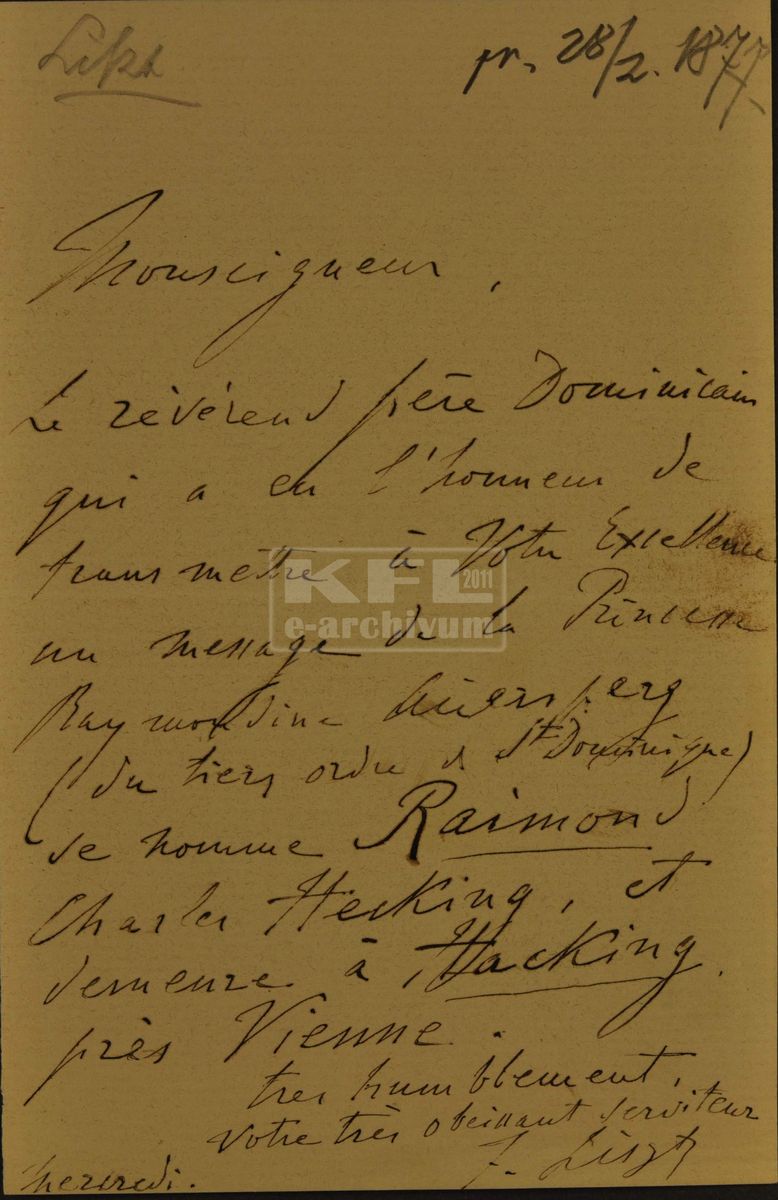 Liszt
pr. 28/2. 1877.
Monseigneur,
Le révérend père Dominicain
qui a eu l'honneur de
transmettre à Votre Excellence
un message de la Princesse
Raymondine Auersperg
(du tiers ordre de St Dominique)
se nomme Raimond
Charles Hecking, et
demeure à Hacking.
près Vienne.
très humblement,
votre très obeissant serviteur
F. Liszt
Mercredi.
KFL 2011
e-archívum